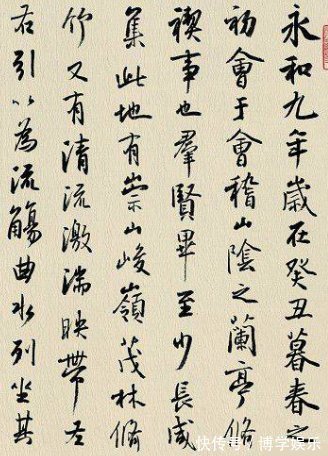 永和九年歲在癸丑暮春之
初會于會稽山陰之蘭亭脩
禊事也羣賢畢至少長咸
集此地有崇山峻嶺茂林脩
竹又有清流激湍映帶左
右引以為流觴曲水列坐其
快传号/博学娱乐